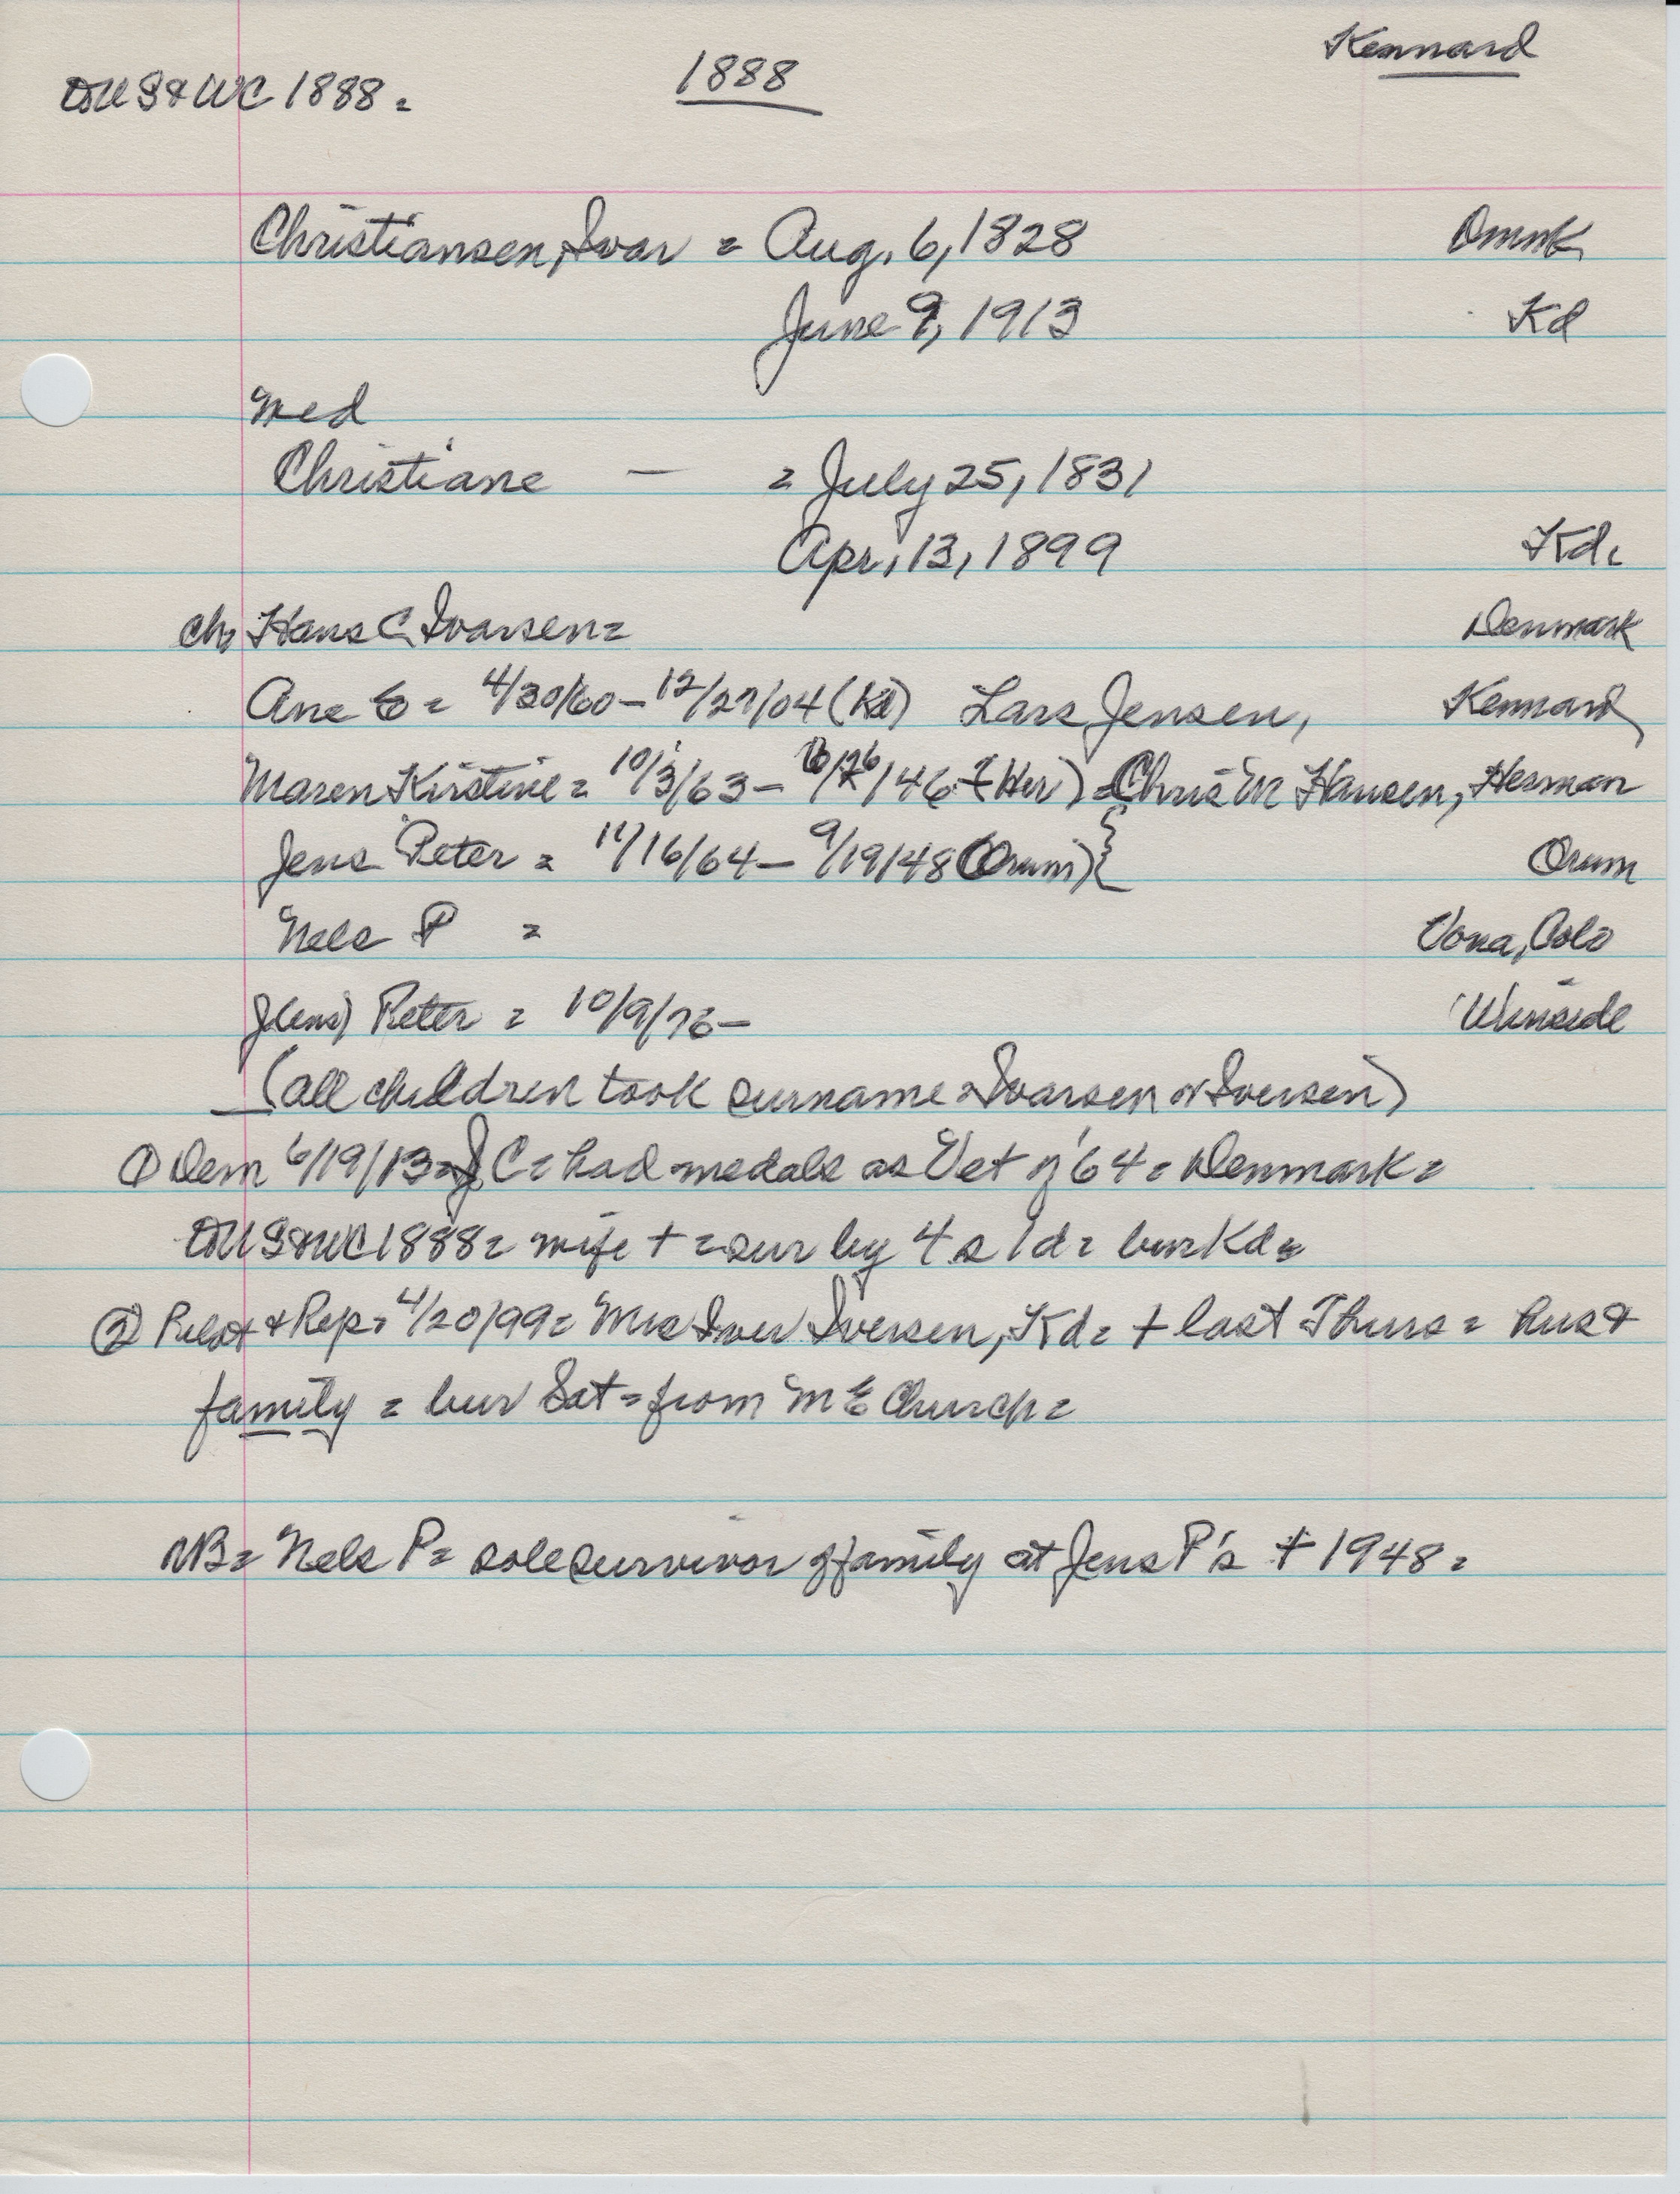 US & WC 1888 = 1888 Kennard
Christiansen, Ivar = Aug. 6, 1828 Dmnk
June 9, 1913 Kd
Med
Christiane — = July 25, 1831
Apr. 13, 1899 Kd.
Ch, Hans C Ivarsen = Denmark
Ane E = 4/30/60 – 12/27/04 (Kd) Lars Jensen, Kennard
Maren Kirstine = 10/3/63 – /26/46 (Her) = Chris M Hansen, Herman
Jens Peter = 11/16/64 – 9/19/48 (Orum) } Orum
Nels P = Vona, Colo
J(ens) Peter = 10/9/76 – Winside
(all children took surname Ivarsen or Iversen)
① Dem 6/19/13 = I C = had medals as Vet of '64 = Denmark =
US & WC 1888 = wife + = sur by 4 s 1 d = bur Kd =
② Pilot & Rep. 4/20/99 = Mrs Iver Iversen, Kd = + last Thurs = hus &
family = bur Sat = from M E Church =
NB = Nels P = sole survivor of family at Jens P's + 1948 =